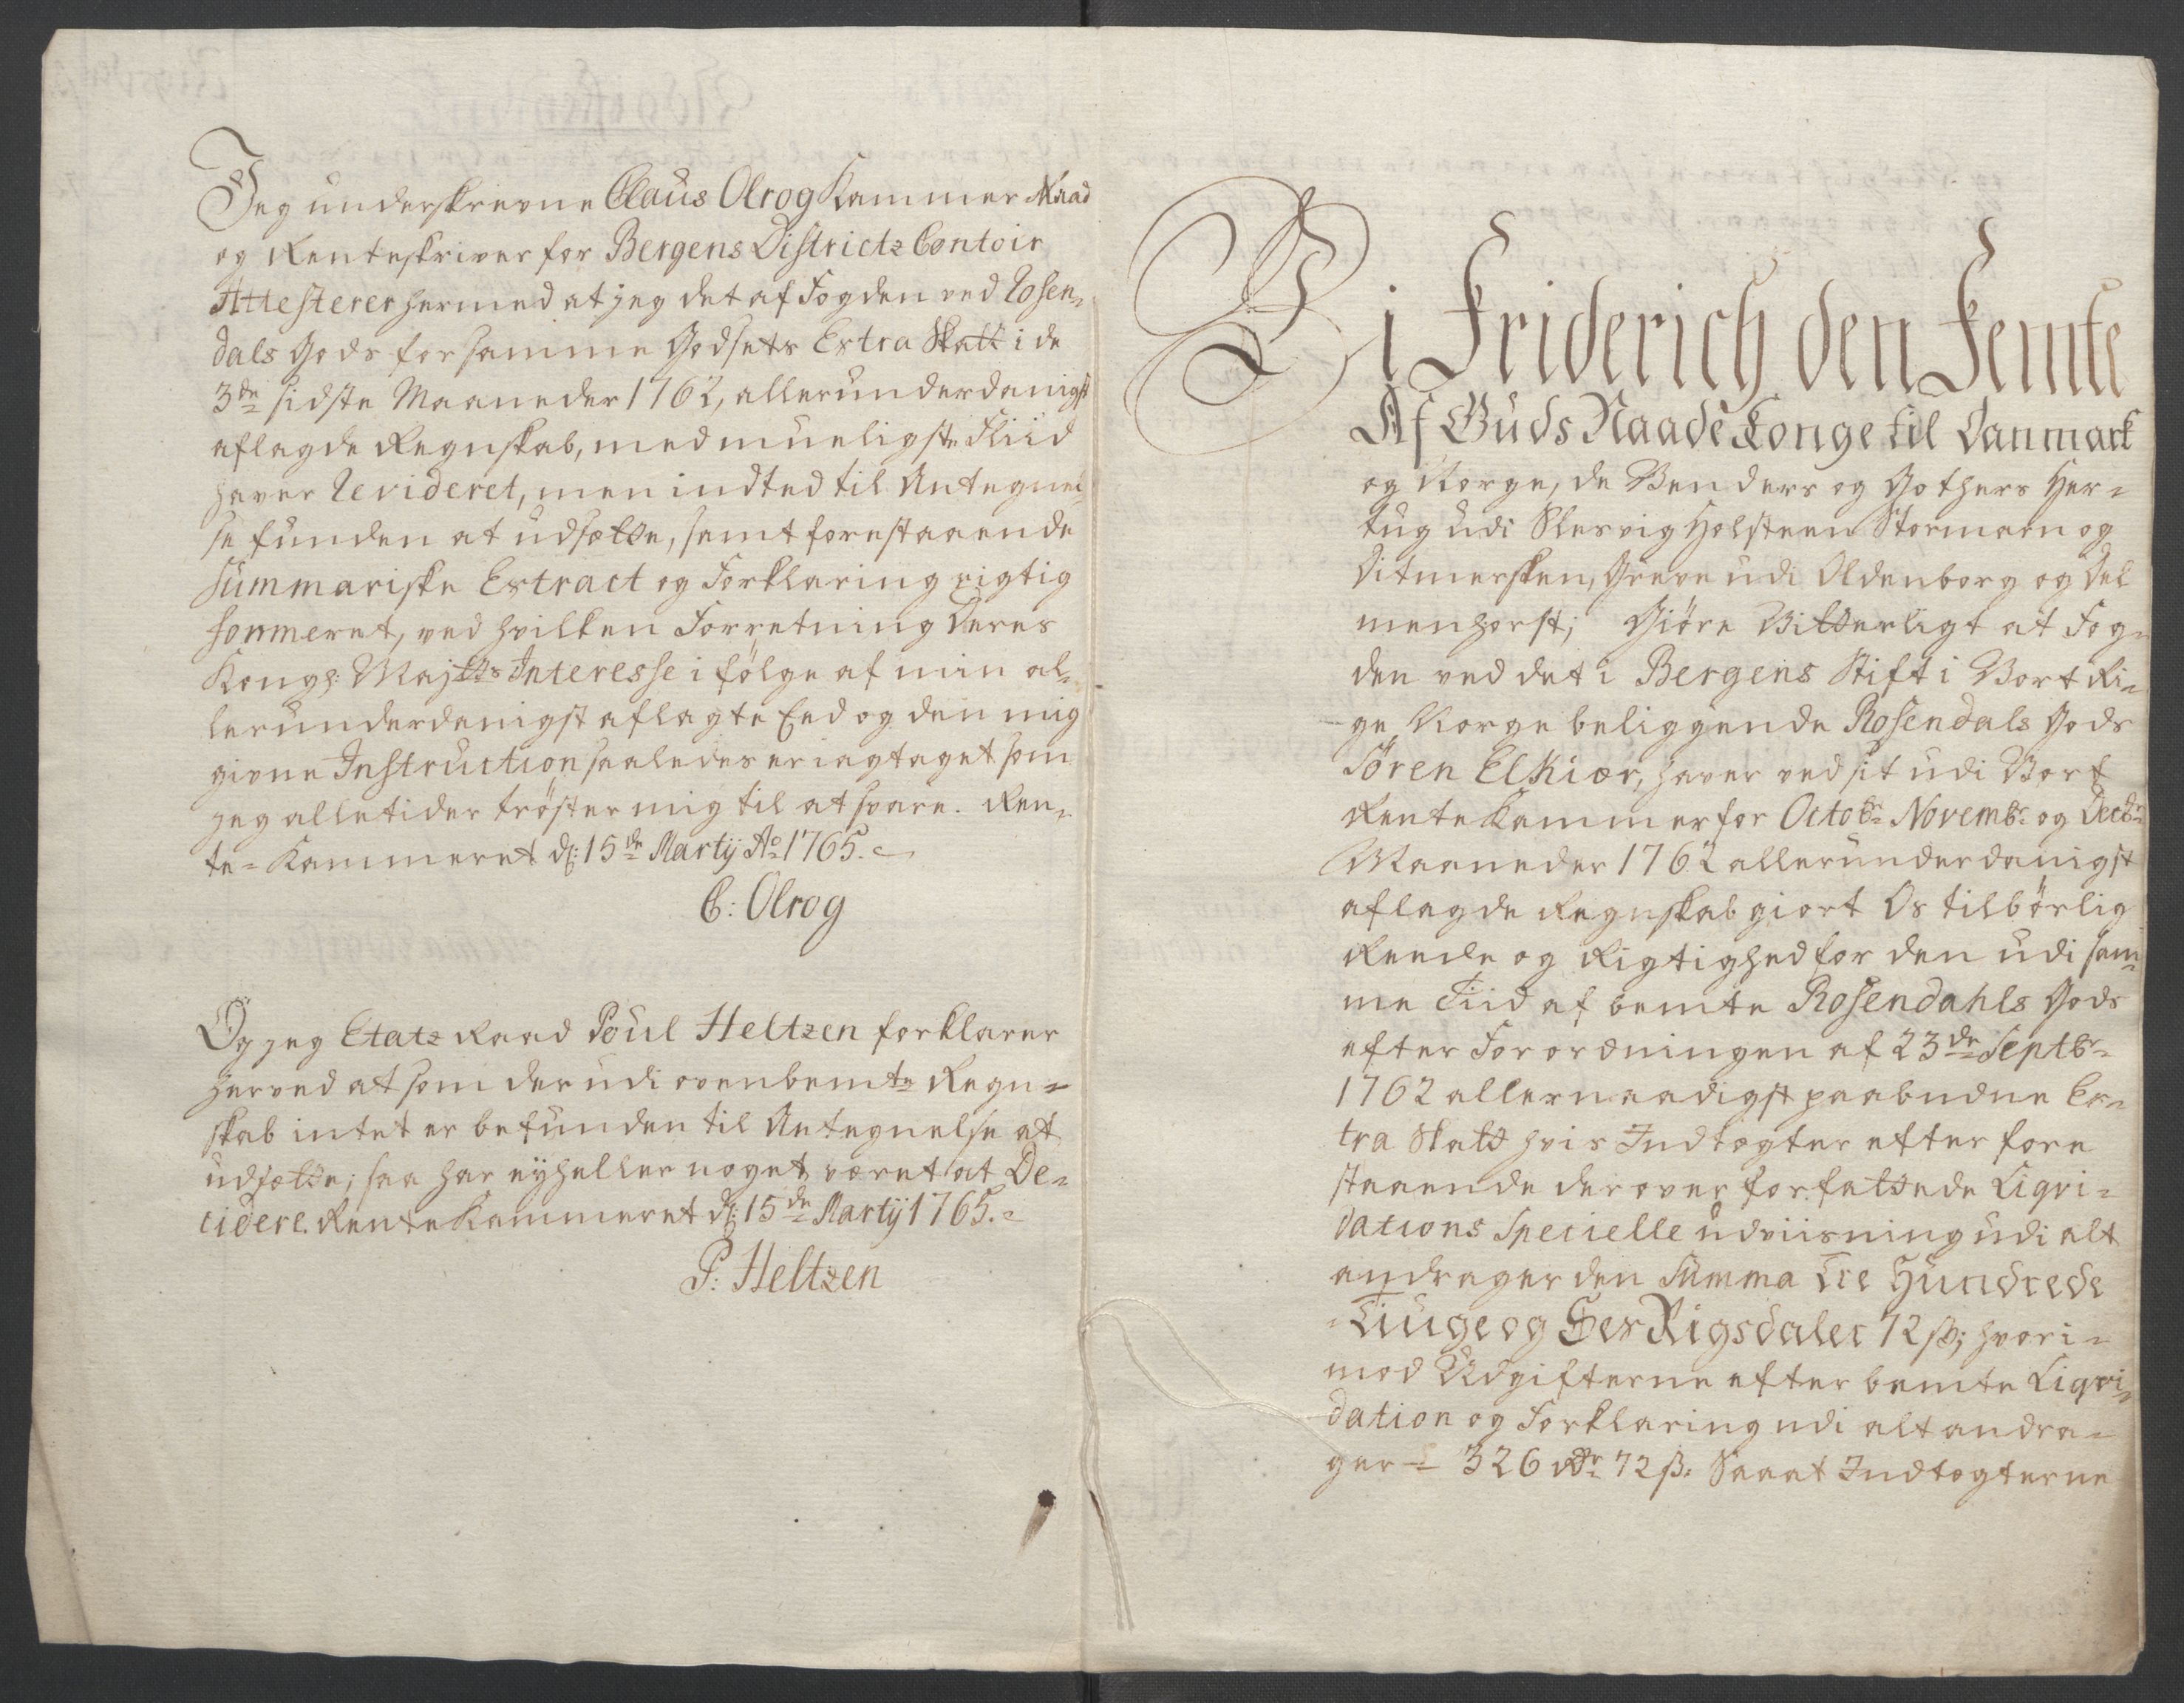 Jeg underskrevne Claus Olrog Kammer Raad
og Renteskriver for Bergens Districtz Contoir
Attesterer hermed at jeg det af Fogden ved Rosen-
dals Gods for samme Godsets Extra Skatt i de
3de sidste Maaneder 1762, allerunderdanigst
aflagde Regnskab, med mueligste Fliid
haver Revideret, men indted til Antegnel-
se funden at udsætte, samt forestaaende
Summariske Extract og Forklaring rigtig
formeret, ved hvilken Forretning Deres
Kongl: Maj:tts Interesse i følge af min al-
lerunderdanigst aflagte Eed og den mig
givne Instruction saaledes er iagtaget som
jeg alletider trøster mig til at svare. Ren-
te-Kammeret d: 15de Martij Ao 1765.
C: Olrog
Og jeg Etatz Raad Poul Heltzen forklarer
herved at som der udi ovenbemte Regn-
skab intet er befunden til Antegnelse at
udsætte; saa har ey heller noget været at De-
cidere. Rente Kammeret d: 15de Martij 1765.
P: Heltzen
Vi Friderich den Femte
Af Guds Naade Konge til Danmark
og Norge, de Venders og Gothers Her-
tug udi Slesvig Holsteen Stormarn og
Ditmersken, Greve udi Oldenborg og Del
menhorst; Giøre Vitterligt at Fog-
den ved det i Bergens Stift i Vort Ri-
ge Norge beliggende Rosendals Gods
Sören Elkiær, haver ved sit udi Vort
Rente Kammer for Octobr Novembr og Decbr
Maaneder 1762 allerunderdanigst
aflagde Regnskab giort Os tilbørlig
Reede og Rigtighed for den udi sam-
me Tiid af bemte Rosendahls Gods
efter Forordningen af 23de Septbr
1762 allernaadigst paabudne Ex-
tra Skatt hvis Indtægter efter fore
staaende derover forfattede Liqvi-
dations Specielle udviisning udi alt
andrager den Summa Tre Hundrede
Tiuge og Sex Rigsdaler 72 ß; hvori-
mod Udgifterne efter bemte Liqvi-
dation og Forklaring udi alt andra-
ger - 326 Rdr 72 ß: Saa at Indtægterne